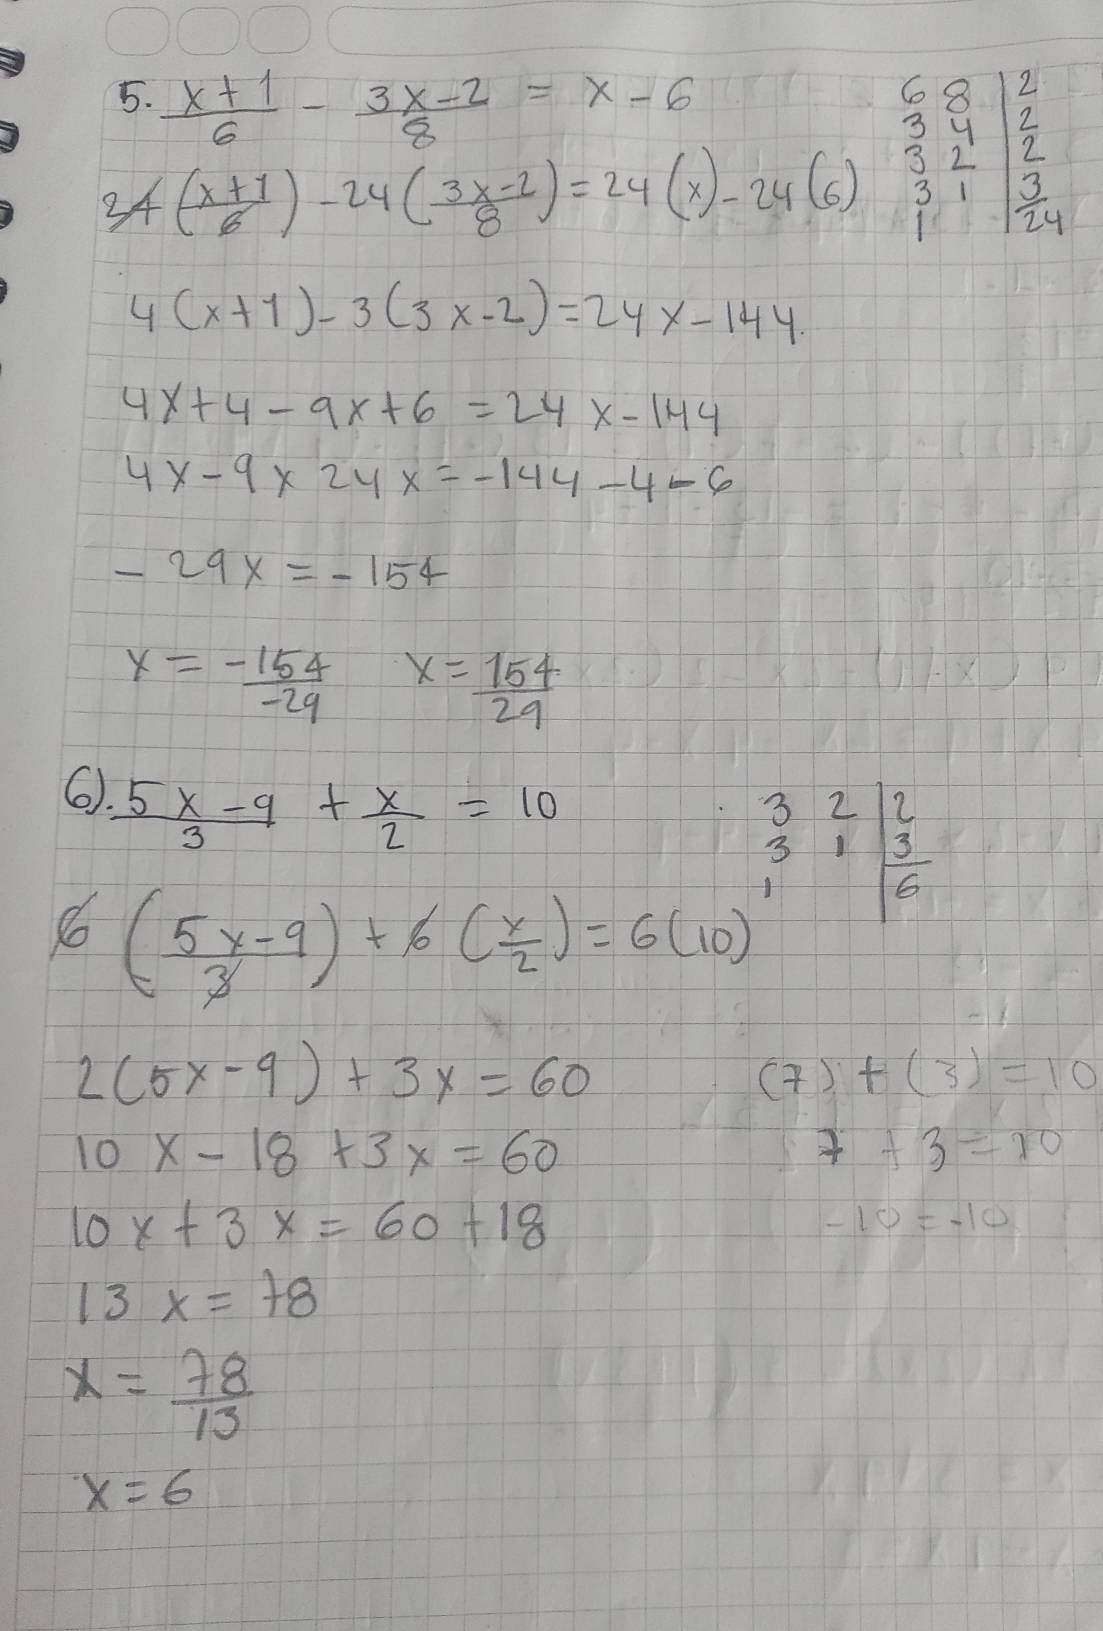 5. (x+1)/6 - (3x-2)/8 = x-6
6 8 | 2
3 4 | 2
3 2 | 2
3 1 | 3
1 | 24
24((x+1)/6) - 24((3x-2)/8) = 24(x) - 24(6)
4(x+1)-3(3x-2)=24x-144.
4x+4-9x+6=24x-144
4x-9x 24x=-144-4-6
-29x=-154
x=-154/-29 x=154/29
6). (5x-9)/3 + x/2 = 10
3 2 | 2
3 1 | 3
1 | 6
6((5x-9)/3) + 6(x/2) = 6(10)
2(5x-9)+3x=60
(7)+(3)=10
10x-18+3x=60
7+3=10
10x+3x=60+18
-10=-10
13x=78
x=78/13
x=6